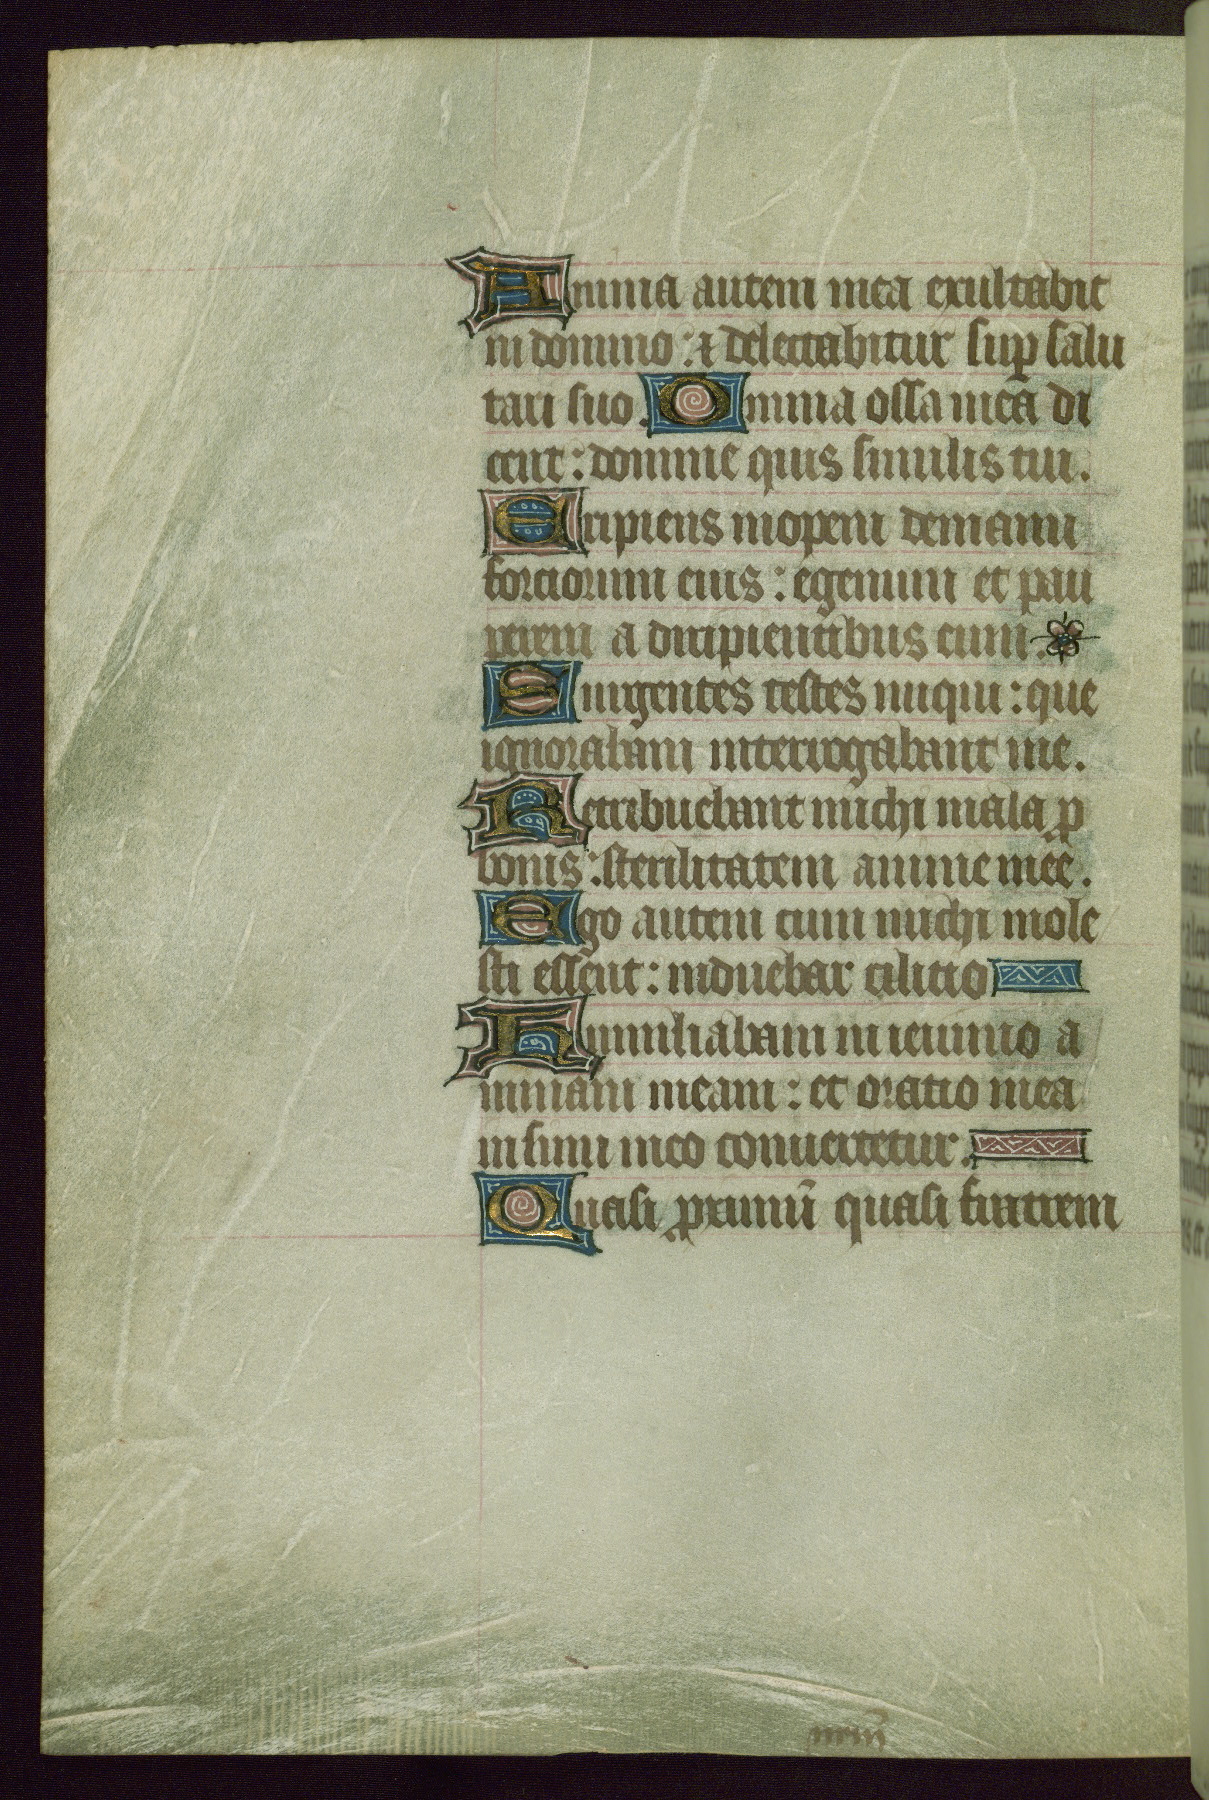 Anima autem mea exultabit
in domino : ⁊ delectabitur sup salu
tari suo. Omnia ossa mea di
cent : domine quis similis tui.
Eripiens inopem de manu
forciorum eius : egenum et pau
perem a diripientibus eum.
Surgentes testes iniqui : que
ignorabam interrogabant me.
Retribuebant michi mala p
bonis : sterilitatem anime mee.
Ego autem cum michi mole
sti essent : induebar cilicio
Humiliabam in ieiunio a
nimam meam : et oratio mea
in sinu meo conuertetur.
Quasi proximū quasi fratrem